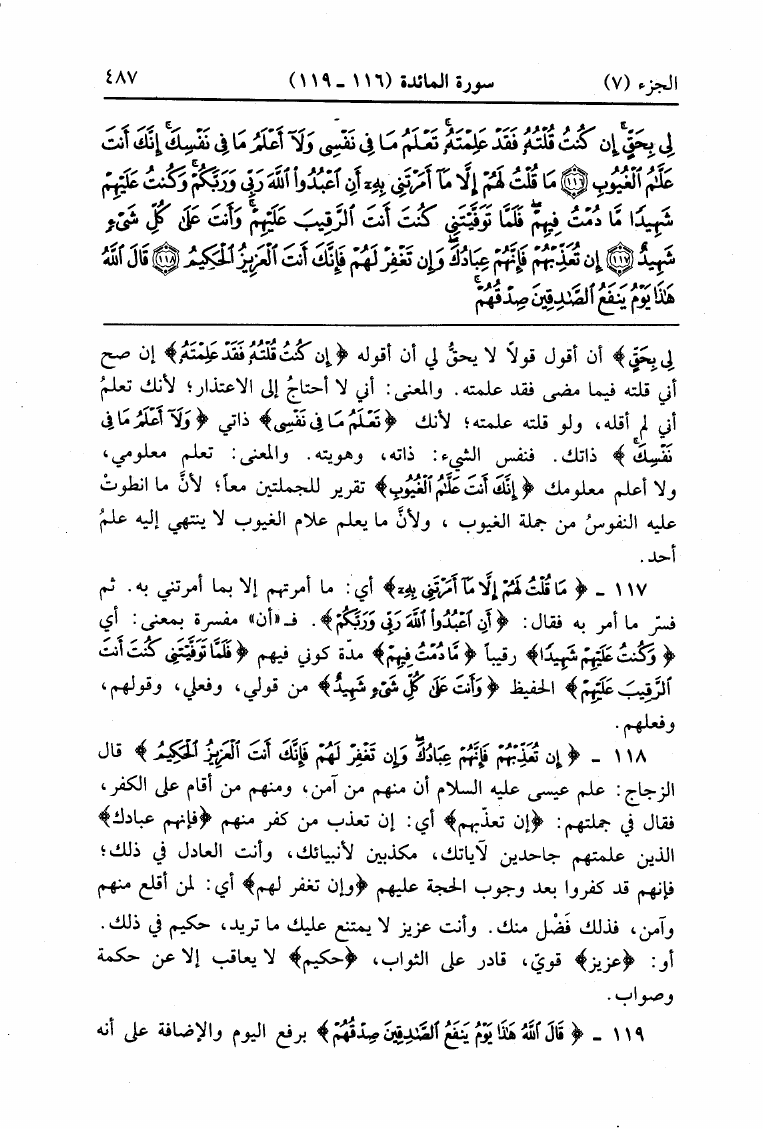 الجزء (٧) سورة المائدة (١١٦ - ١١٩) ٤٨٧
لِى بِحَقٍّ إِن كُنتُ قُلْتُهُۥ فَقَدْ عَلِمْتَهُۥ تَعْلَمُ مَا فِى نَفْسِى وَلَآ أَعْلَمُ مَا فِى نَفْسِكَ إِنَّكَ أَنتَ
عَلَّٰمُ ٱلْغُيُوبِ ﴿١١٦﴾ مَا قُلْتُ لَهُمْ إِلَّا مَآ أَمَرْتَنِى بِهِۦٓ أَنِ ٱعْبُدُوا۟ ٱللَّهَ رَبِّى وَرَبَّكُمْ وَكُنتُ عَلَيْهِمْ
شَهِيدًا مَّا دُمْتُ فِيهِمْ فَلَمَّا تَوَفَّيْتَنِى كُنتَ أَنتَ ٱلرَّقِيبَ عَلَيْهِمْ وَأَنتَ عَلَىٰ كُلِّ شَىْءٍ
شَهِيدٌ ﴿١١٧﴾ إِن تُعَذِّبْهُمْ فَإِنَّهُمْ عِبَادُكَ وَإِن تَغْفِرْ لَهُمْ فَإِنَّكَ أَنتَ ٱلْعَزِيزُ ٱلْحَكِيمُ ﴿١١٨﴾ قَالَ ٱللَّهُ
هَٰذَا يَوْمُ يَنفَعُ ٱلصَّٰدِقِينَ صِدْقُهُمْ
لِى بِحَقٍّ﴾ أن أقول قولاً لا يحقُّ لي أن أقوله ﴿إِن كُنتُ قُلْتُهُۥ فَقَدْ عَلِمْتَهُۥ﴾ إن صح
أني قلته فيما مضى فقد علمته. والمعنى: أني لا أحتاجُ إلى الاعتذار؛ لأنك تعلمُ
أني لم أقله، ولو قلته علمته؛ لأنك ﴿تَعْلَمُ مَا فِى نَفْسِى﴾ ذاتي ﴿وَلَآ أَعْلَمُ مَا فِى
نَفْسِكَ﴾ ذاتك. فنفس الشيء: ذاته، وهويته. والمعنى: تعلم معلومي،
ولا أعلم معلومك ﴿إِنَّكَ أَنتَ عَلَّٰمُ ٱلْغُيُوبِ﴾ تقرير للجملتين معاً؛ لأنَّ ما انطوتْ
عليه النفوسُ من جملة الغيوب ، ولأنَّ ما يعلم علام الغيوب لا ينتهي إليه علمُ
أحد.
١١٧ - ﴿مَا قُلْتُ لَهُمْ إِلَّا مَآ أَمَرْتَنِى بِهِۦٓ﴾ أي: ما أمرتهم إلا بما أمرتني به. ثم
فسّر ما أمر به فقال: ﴿أَنِ ٱعْبُدُوا۟ ٱللَّهَ رَبِّى وَرَبَّكُمْ﴾. فـ«أن» مفسرة بمعنى: أي
﴿وَكُنتُ عَلَيْهِمْ شَهِيدًا﴾ رقيباً ﴿مَّا دُمْتُ فِيهِمْ﴾ مدّة كوني فيهم ﴿فَلَمَّا تَوَفَّيْتَنِى كُنتَ أَنتَ
ٱلرَّقِيبَ عَلَيْهِمْ﴾ الحفيظ ﴿وَأَنتَ عَلَىٰ كُلِّ شَىْءٍ شَهِيدٌ﴾ من قولي، وفعلي، وقولهم،
وفعلهم.
١١٨ - ﴿إِن تُعَذِّبْهُمْ فَإِنَّهُمْ عِبَادُكَ وَإِن تَغْفِرْ لَهُمْ فَإِنَّكَ أَنتَ ٱلْعَزِيزُ ٱلْحَكِيمُ﴾ قال
الزجاج: علم عيسى عليه السلام أن منهم من آمن، ومنهم من أقام على الكفر،
فقال في جملتهم: ﴿إن تعذّبهم﴾ أي: إن تعذب من كفر منهم ﴿فإنهم عبادك﴾
الذين علمتهم جاحدين لآياتك، مكذبين لأنبيائك، وأنت العادل في ذلك؛
فإنهم قد كفروا بعد وجوب الحجة عليهم ﴿وإن تغفر لهم﴾ أي: لمن أقلع منهم
وآمن، فذلك فَضْل منك. وأنت عزيز لا يمتنع عليك ما تريد، حكيم في ذلك.
أو: ﴿عزيز﴾ قويّ، قادر على الثواب، ﴿حكيم﴾ لا يعاقب إلا عن حكمة
وصواب.
١١٩ - ﴿قَالَ ٱللَّهُ هَٰذَا يَوْمُ يَنفَعُ ٱلصَّٰدِقِينَ صِدْقُهُمْ﴾ برفع اليوم والإضافة على أنه